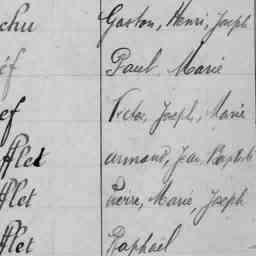 chu Gaston, Henri, Joseph
éf Paul, Marie
ef Victor, Joseph, Marie
fflet Armand, Jean, Baptiste
fflet Pierre, Marie, Joseph
fflet Raphaël